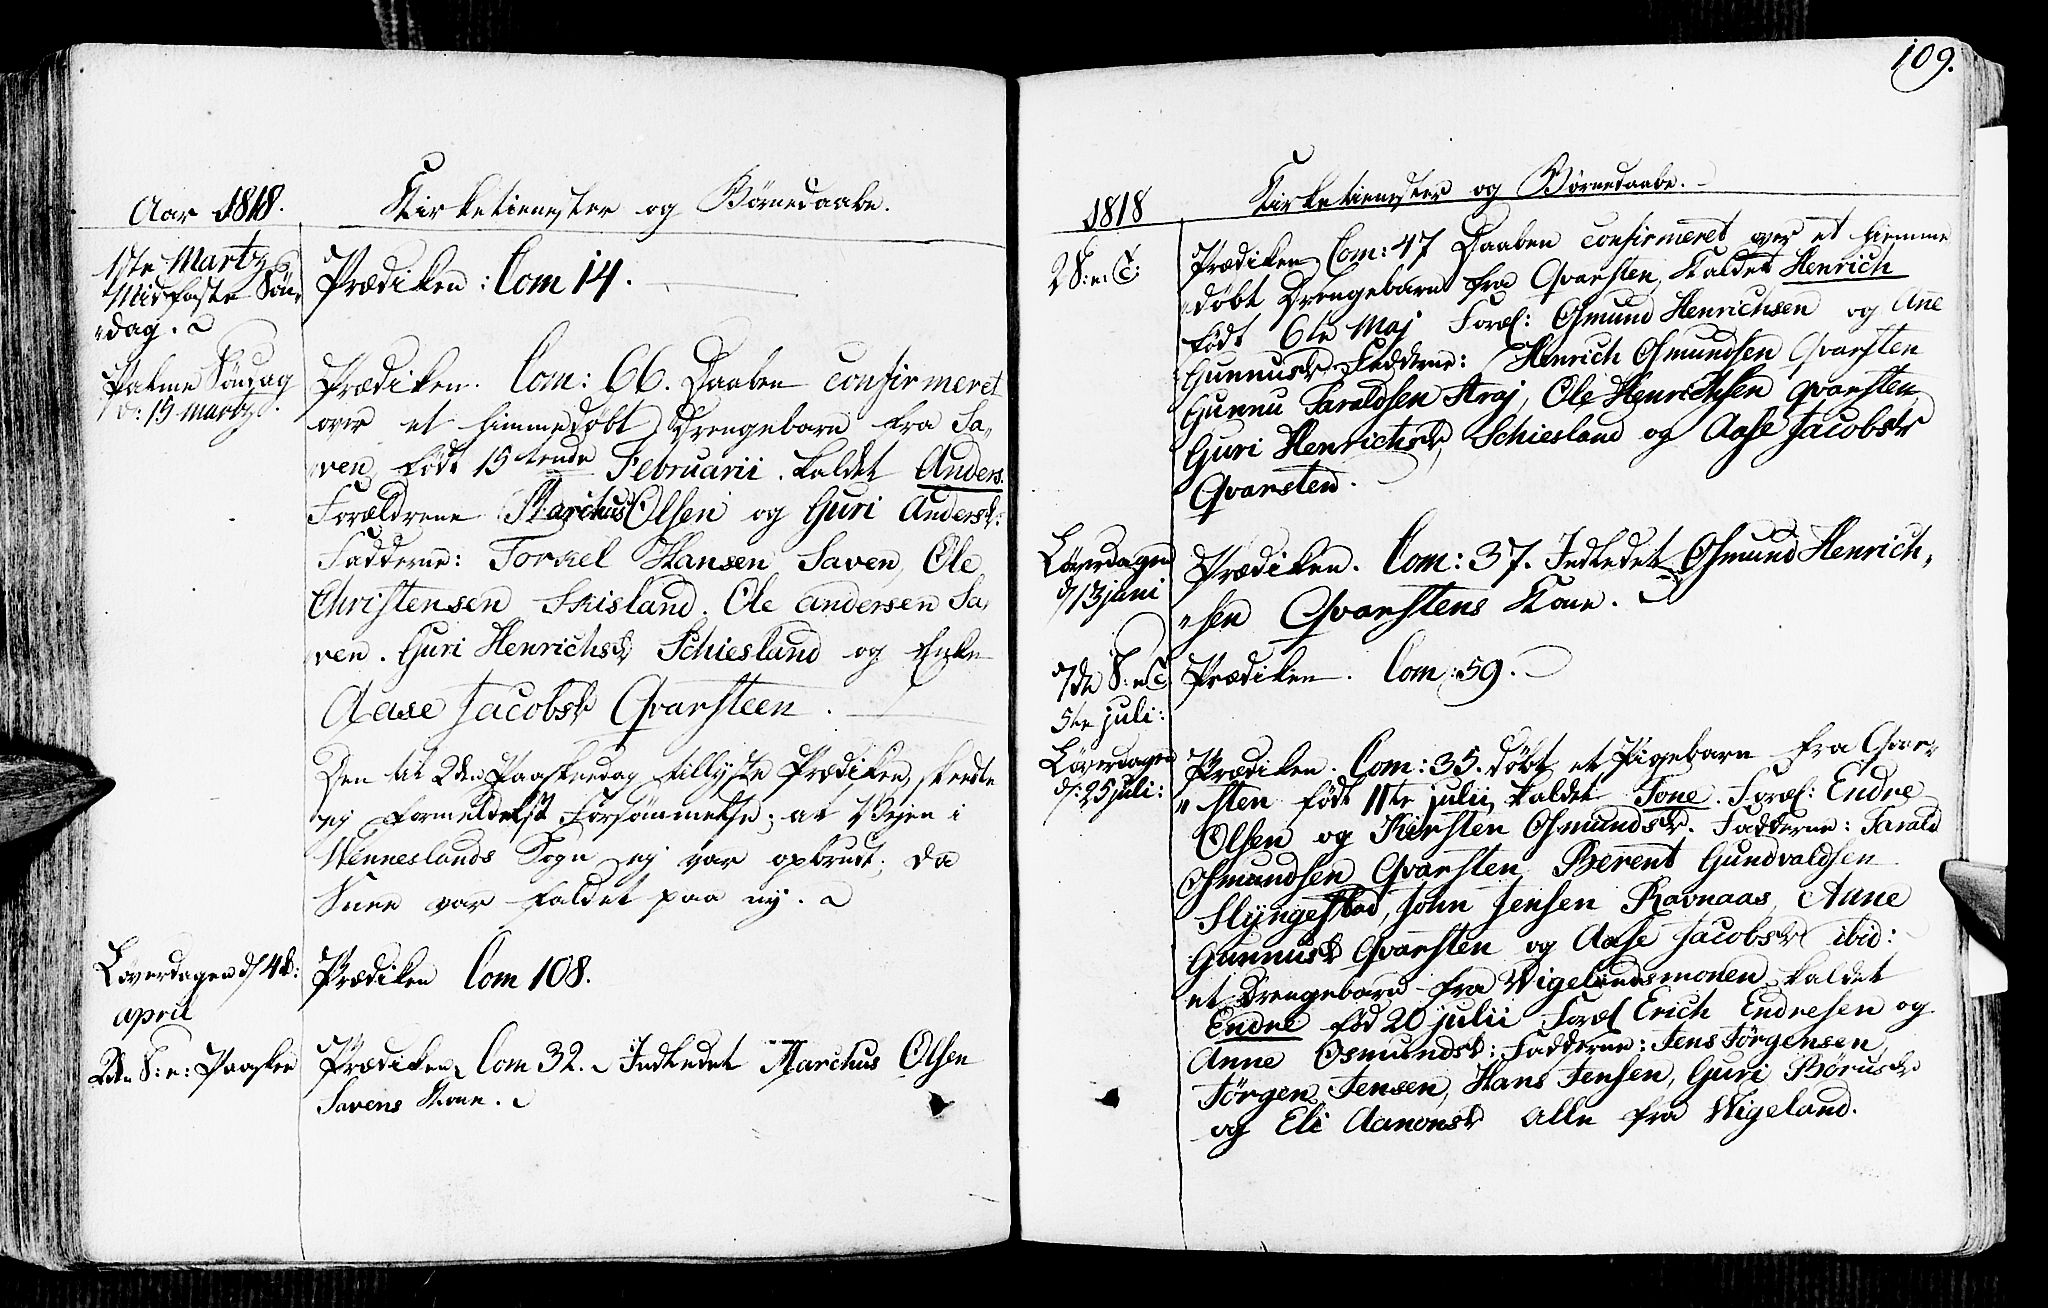 Aar 1818.
Kirketienester og Börnedaabe.
1ste Martz
Midfaste Sön-
dag.
Prædiken: Com 14.
Palme Söndag
d: 15 Martz.
Prædiken. Com: 66. Daaben confirmeret
over et hiemmedöbt Drengebarn fra Sa-
ven, født 15tende Februarii. kaldet Anders.
Forældrene Marchus Olsen og Guri Andersdr:
Fadderne: Torkel Hansen Saven, Ole
Christensen Skisland. Ole Andersen Sa-
ven. Guri Henrichsdr Schiesland og Enke
Aase Jacobsdr Qvarsteen.
Den til 2den Paaskedag tillyste Prædiken, skeedte
ej formedelst Forsömmelse; at Vejen i
Wenneslands Sogn ej var opbrudt; da
Snee var faldet paa ny.
Löverdagen d 4de:
april
Prædiken Com 108.
2den S: e: Paaske
Prædiken, Com 32. Indledet Marchus Olsen
Savens Kone.
109.
1818
Kirketienester og Börnedaabe.
2 S: e: T:
Prædiken, Com: 47 Daaben confirmeret over et hiemme
döbt Drengebarn fra Qvarsten, kaldet Henrich
født 6te Maj Foræl: Osmund Henrichsen og Ane
Gunnusdr. Fadderne: Henrich Osmundsen Qvarsten
Gunnu Taraldsen Straj, Ole Henrichsen Qvarsten,
Guri Henrichsdr, Schiesland og Aase Jacobsdr
Qvarsten.
Löverdagen
d/13 juni
Prædiken. Com: 37. Indledet Osmund Henrich-
sen Qvarstens Kone.
7de S: e T.
5te juli:
Prædiken. Com: 59.
Löverdagen
d: 25 juli:
Prædiken. Com: 35. döbt et Pigebarn fra Qvar-
sten født 11te julii, kaldet Tone. Foræl: Endre
Olsen og Kirsten Osmundsdr. Fadderne: Tarald
Osmundsen Qvarsten, Berent Gundvaldsen
Slyngestad, John Jensen Ravnaas, Anne
Gunnusdr Qvarsten og Aase Jacobsdr ibid:
et Drengebarn fra Wigelandsmonen kaldet
Endre fød 20 julii Foræl Erich Endresen og
Anne Osmundsdr: Fadderne: Jens Jörgensen,
Jörgen Jensen, Hans Jensen, Guri Börusdr
og Eli Aanonsdr alle fra Wigeland.